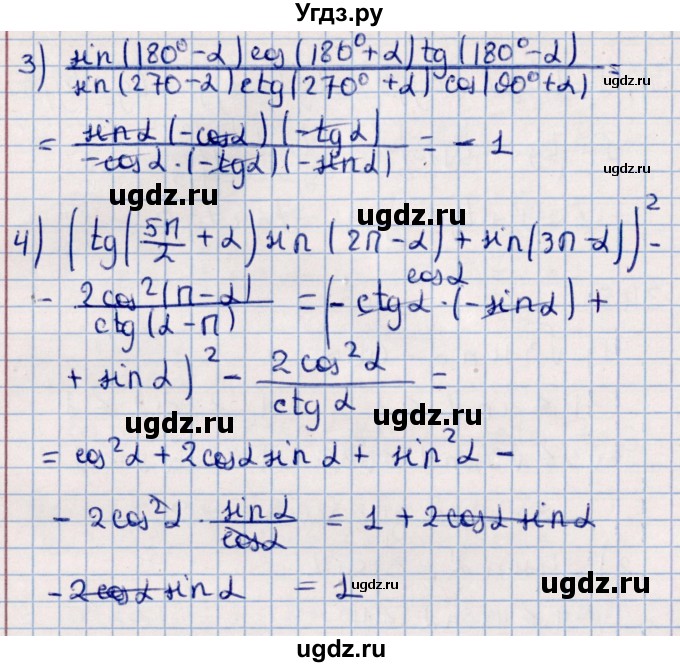 Угдз.ру
3) sin(180⁰-α)cos(180⁰+α)tg(180⁰-α) / sin(270-α)ctg(270⁰+α)cos(90⁰+α) =
ugdz.ru
= sinα(-cosα)(-tgα) / -cosα·(-tgα)(-sinα) = -1
ugdz.ru
ugdz.ru
4) (tg(5π/2+α)sin(2π-α)+sin(3π-α))² -
ugdz.ru
- 2cos²(π-α) / ctg(α-π) = (-ctgα·(-sinα)+
cosα
ugdz.ru
+ sinα)² - 2cos²α / ctgα =
ugdz.ru
ugdz.ru
= cos²α+2cosα sinα + sin²α -
- 2cos²α · sinα / cosα = 1 + 2cosα sinα
ugdz.ru
ugdz.ru
- 2cosα sinα = 1
ugdz.ru
ugdz.ru